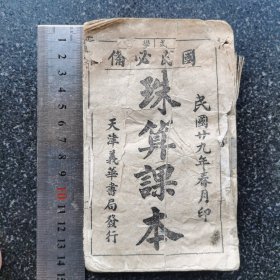 國民必備
民國廿九年春月印
珠算課本
天津義華書局發行
1 2 3 4 5 6 7 8 9 10 11 12 13 14